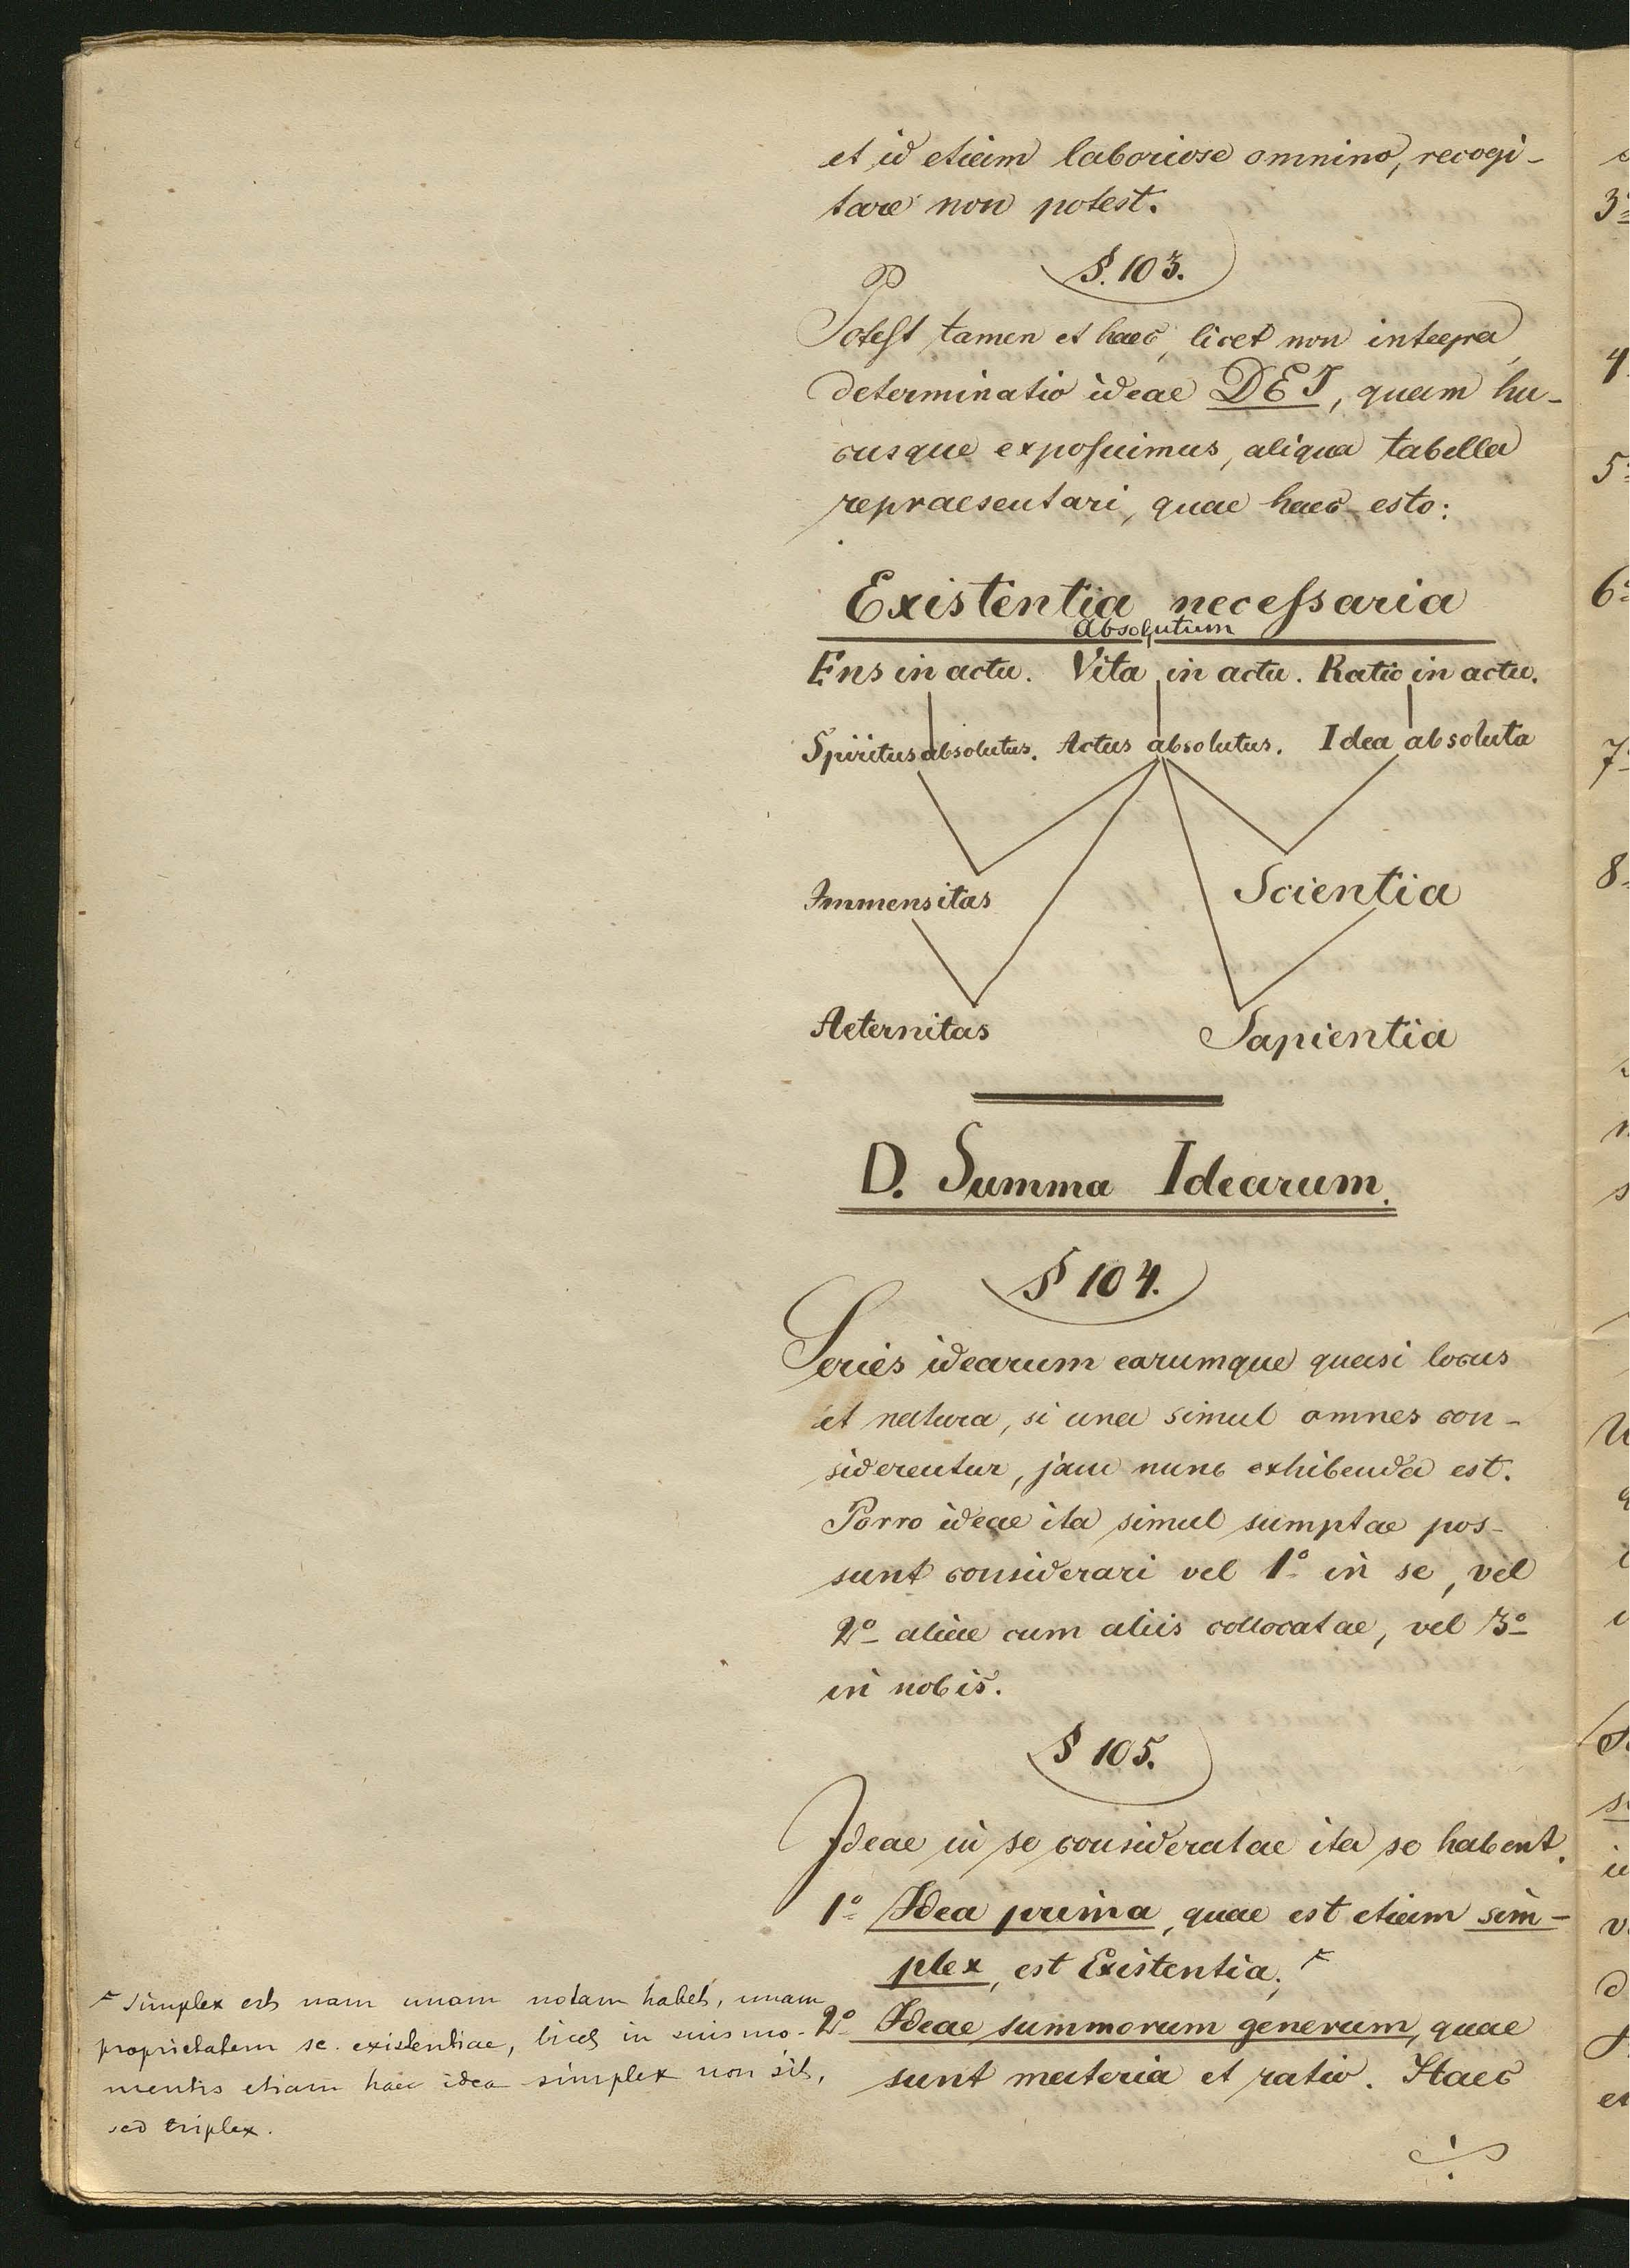 et id etiam laboriose omnino, recogi-
tare non potest.
§. 103.
Potest tamen et haec, licet non integra,
determinatio ideae DEI, quam hu-
cusque exposuimus, aliqua tabella
repraesentari, quae haec esto:
Existentia necessaria
Absolutum
Ens in actu. Vita in actu. Ratio in actu.
Spiritus absolutus. Actus absolutus. Idea absoluta
Immensitas Scientia
Aeternitas Sapientia
D. Summa Idearum.
§ 104.
Series idearum earumque quasi locus
et natura, si una simul omnes con-
siderentur, jam nunc exhibenda est.
Porro ideae ita simul sumptae pos-
sunt considerari vel 1º in se, vel
2º aliae cum aliis collocatae, vel 3º
in nobis.
§ 105.
Ideae in se consideratae ita se habent.
1º Idea prima, quae est etiam sim-
plex, est Existentia;
2º Ideae summorum generum, quae
sunt materia et ratio. Haec
simplex est nam unam notam habet, unam
proprietatem sc. existentiae, licet in suis mo-
mentis etiam haec idea simplex non sit,
sed triplex.
3º
4
5º
6º
7º
8º